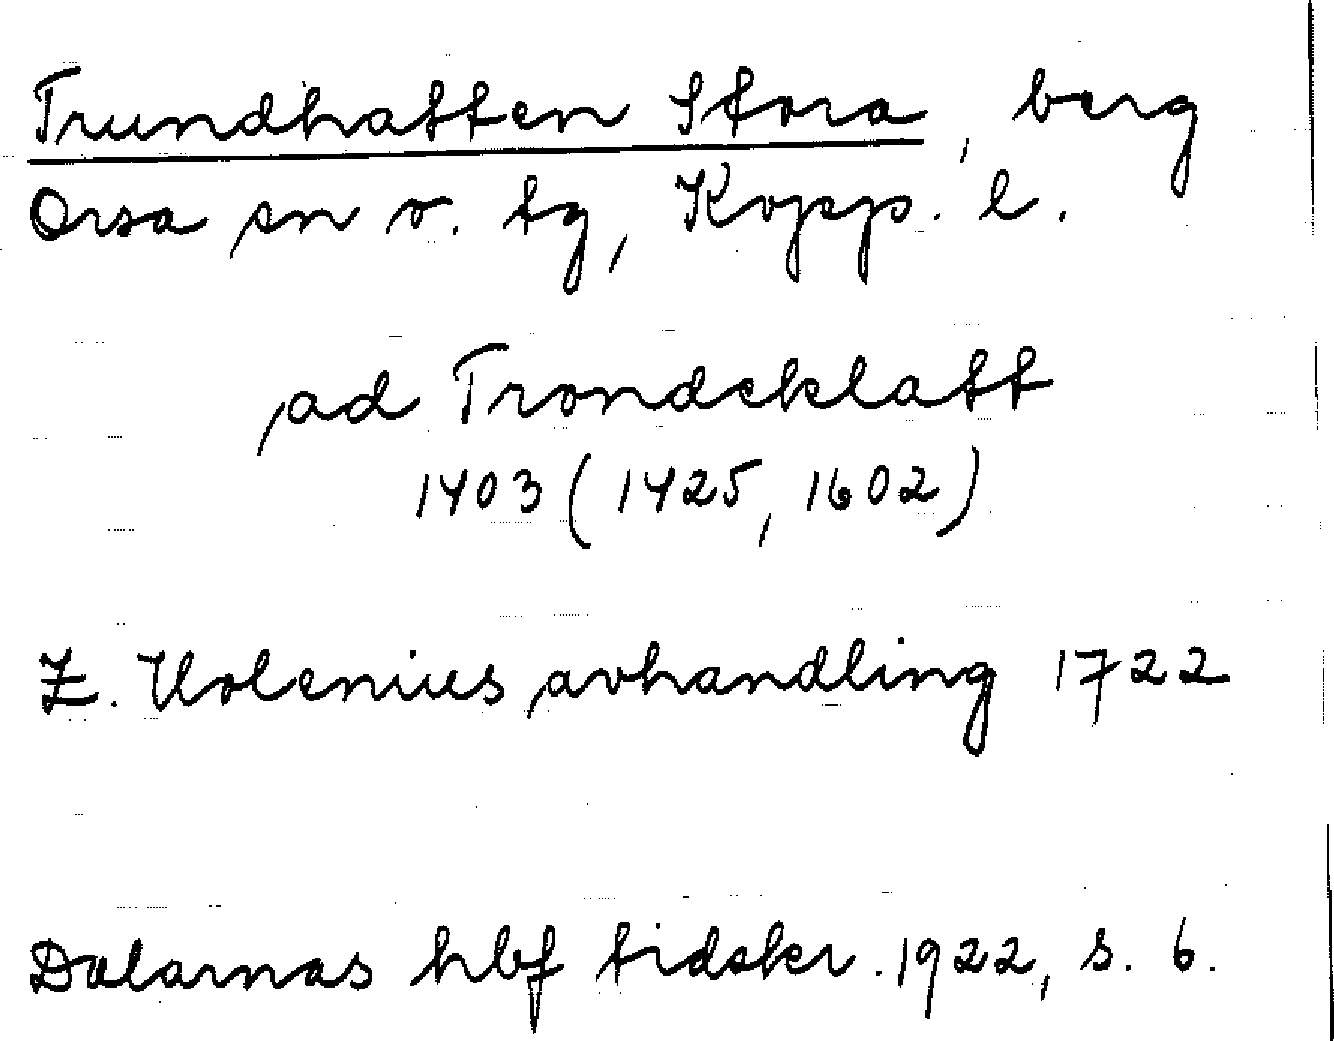 Trundhatten Stora, berg
Orsa sn o. tg, Kopp. l.
ad Trondeklatt
1403 (1425, 1602)
Z. Holenius avhandling 1722
Dalarnas hbf tidskr. 1922, s. 6.